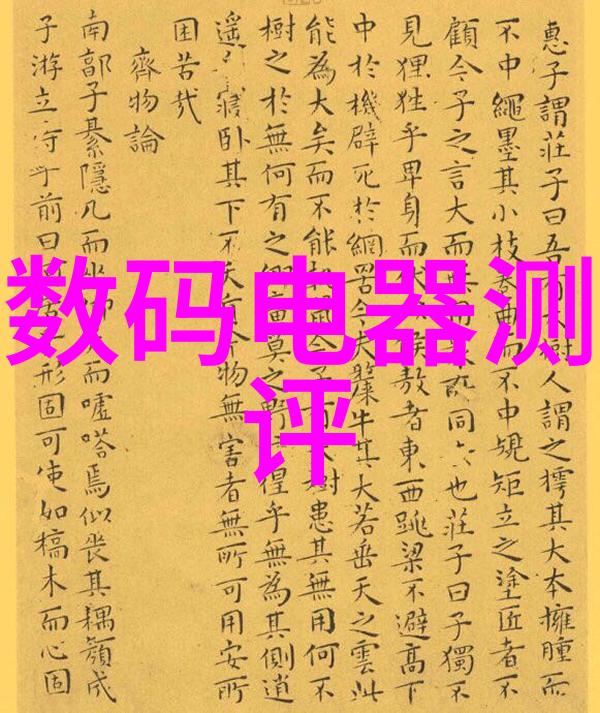 惠子謂莊子曰吾樹人謂之樗其大本擁腫而
不中繩墨其小枝卷曲而不中規矩立之塗匠者不
顧今子之言大而所同也莊子曰子獨不
見狸狌乎卑身而候敖者東西跳梁不避高下
中於機辟死於網罟今夫斄牛其大若垂天之雲此
能為大矣而不能今子樹患其無用何不
樹之於無何有之莫之野徨乎無為其側逍
遙寢臥其下不夭物無害者無所可用安所
困苦哉
齊物論
南郭子綦隱几而坐而噓嗒焉似喪其耦顏成
子游立侍乎前曰形固可使如槁木而心固
数码电器测
评